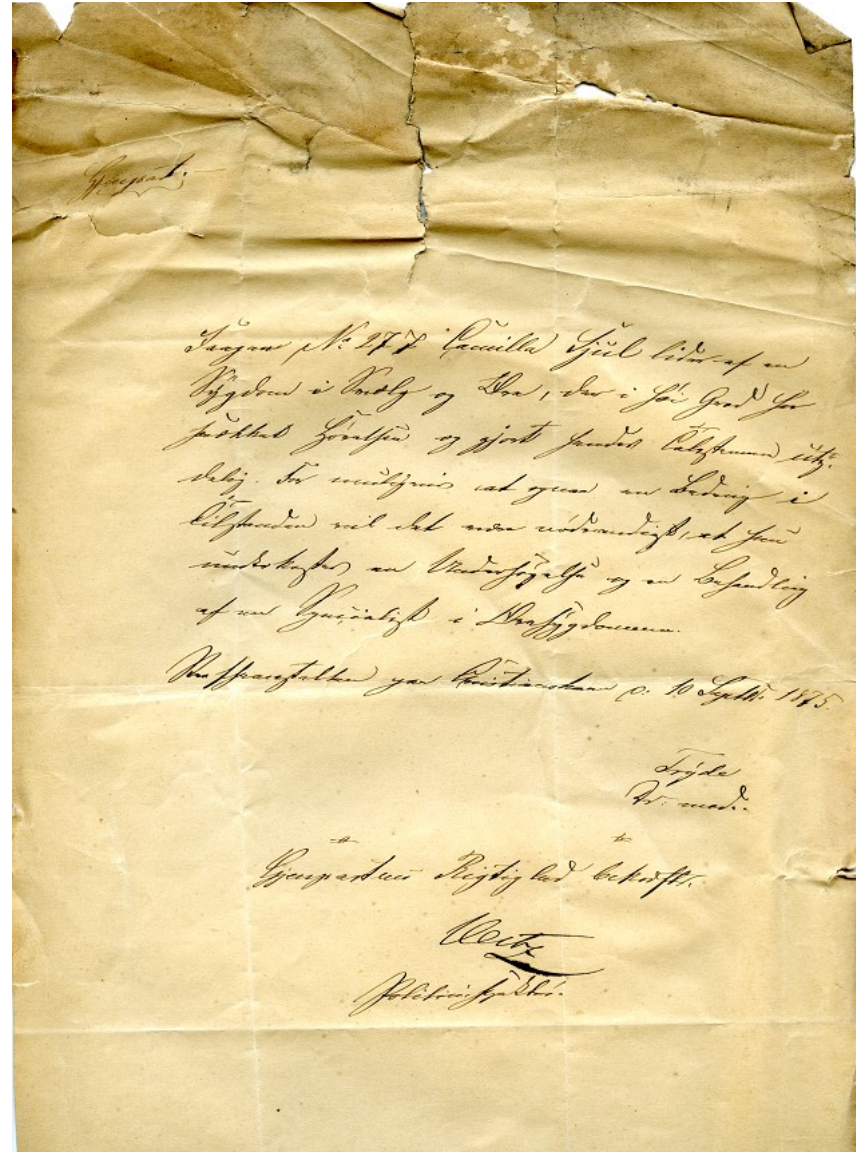 Gjenpart.
Fangen No 277 Camilla Hjul lider af en
Sygdom i Svælg og Øre, der i høi Grad har
svækket Hørelsen og gjort hendes Talestemme uty-
delig. For muligvis at opnaa en Bedring i
Tilstanden vil det være nødvendigt, at hun
underkastes en Undersøgelse og en Behandling
af en Specialist i Øresygdomme.
Straffeanstalten paa Christianshavn d. 10 Septbr. 1875.
Tryde
Dr. med.
Gjenpartens Rigtighed bekræftes.
Politiinspektør.